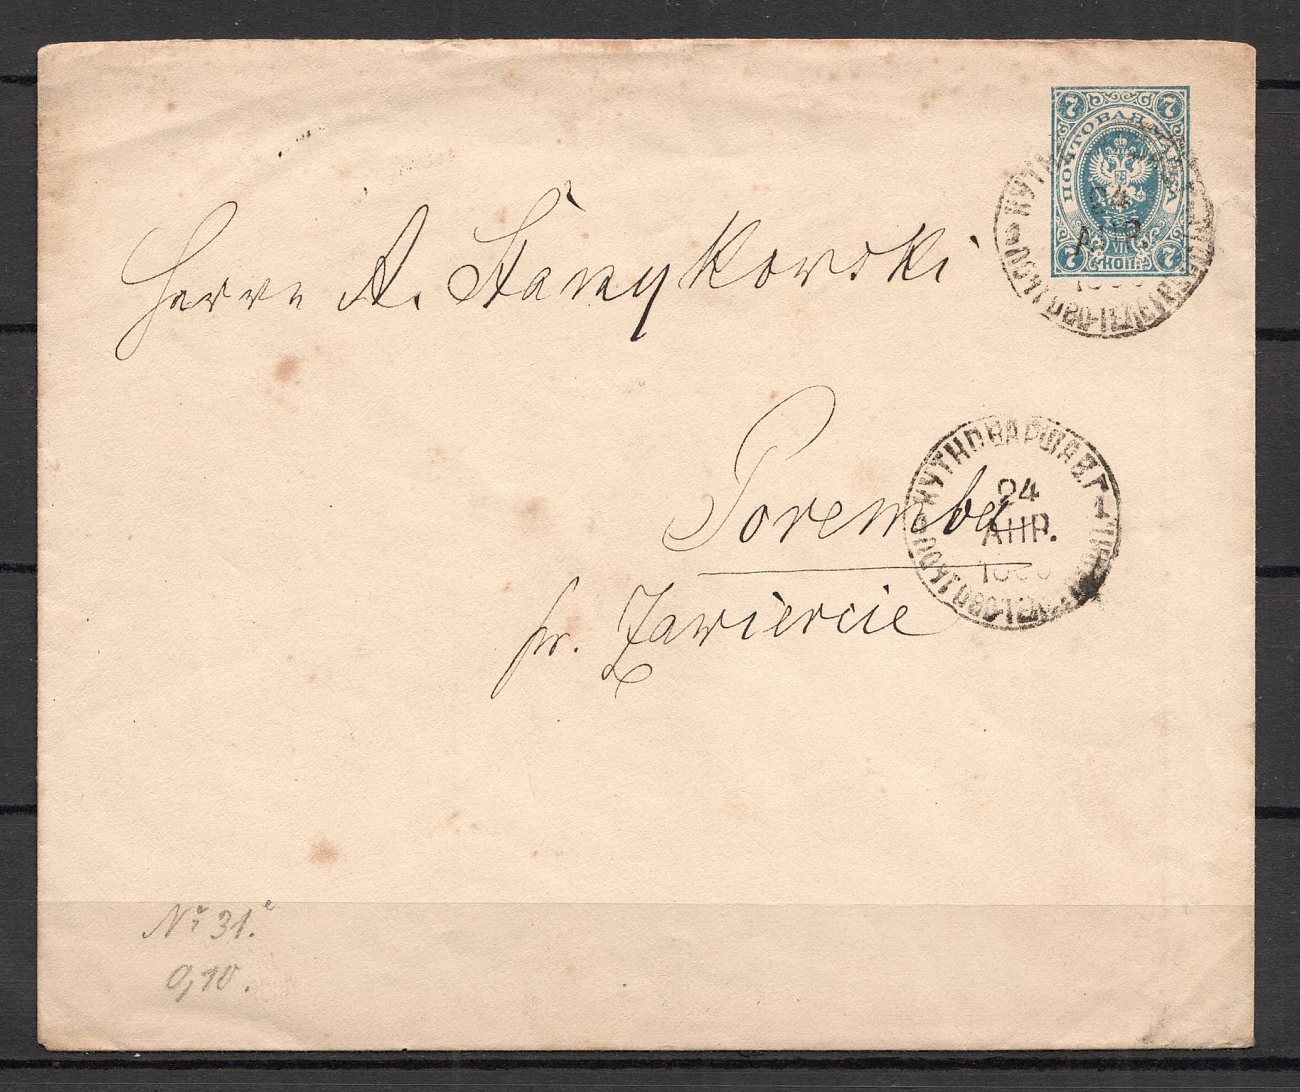 7 7
ПОЧТОВАЯ МАРКА
24
АПР.
7 КОП. 7
Herrn A. Stanykowski
КУТНО ВАРШАВ. Г.
24
АПР.
Poremba
pr. Zawiercie
№ 31.e
0,10.